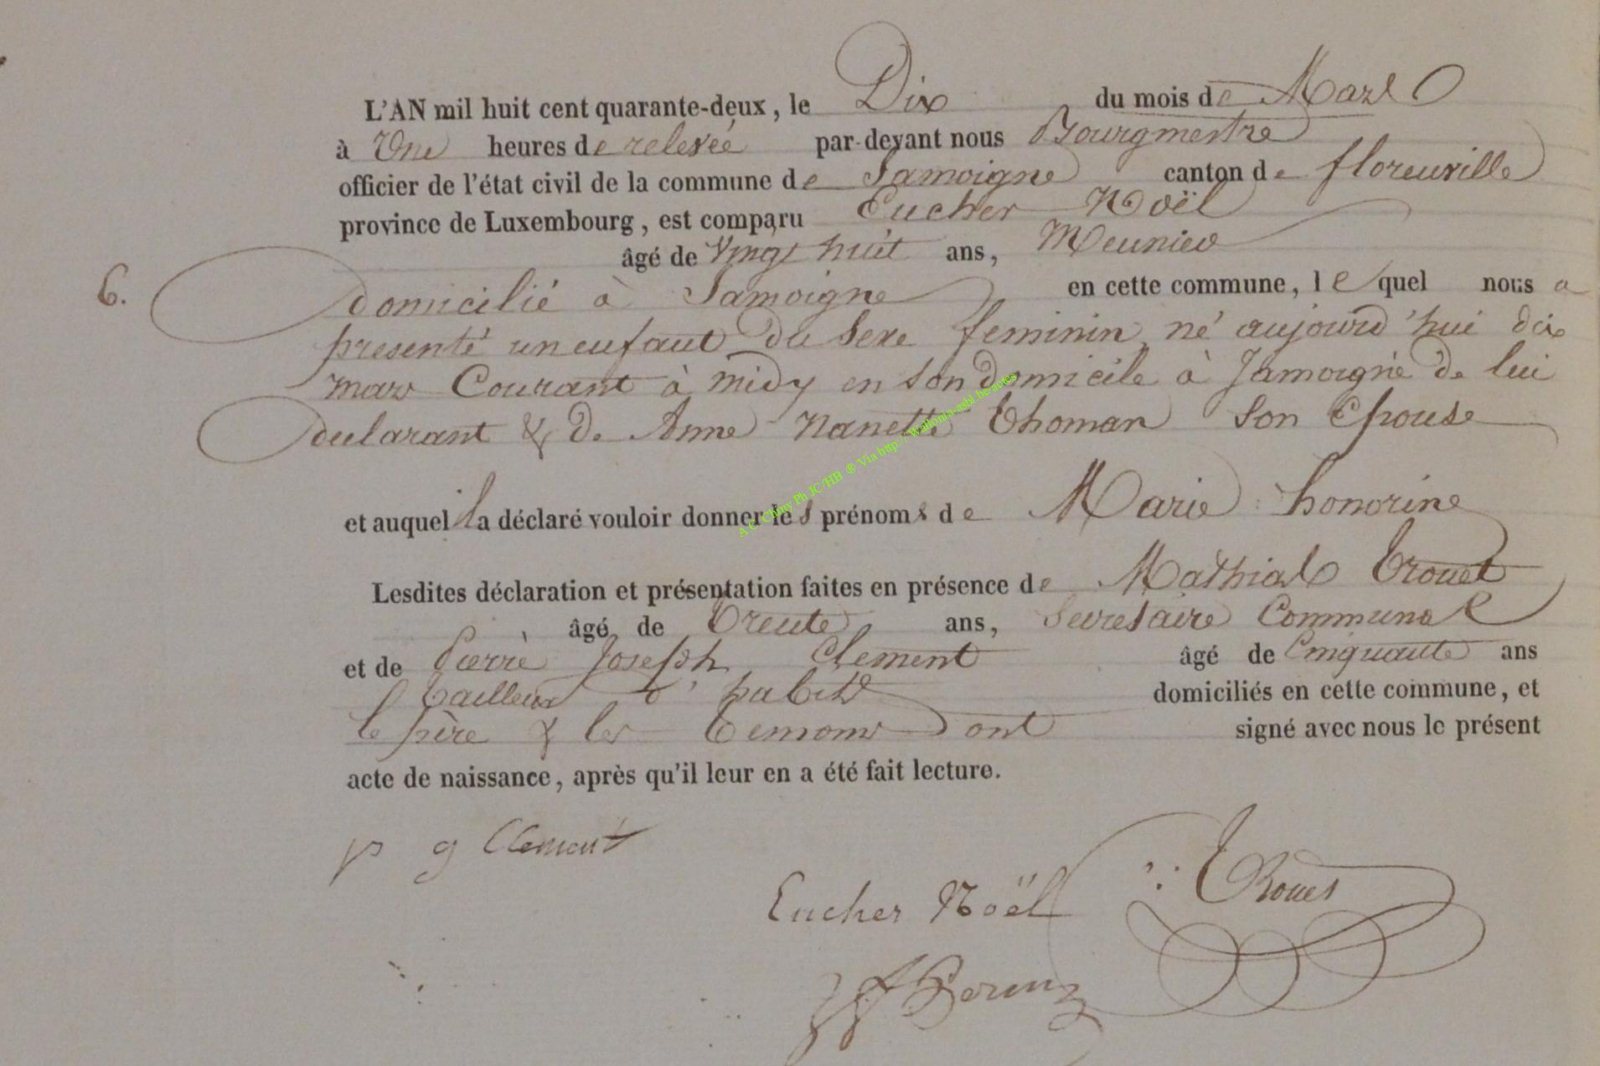 L'AN mil huit cent quarante-deux, le Dix du mois de Mars
à Une heures de relevée par-devant nous Bourgmestre
officier de l'état civil de la commune de Jamoigne canton de florenville
province de Luxembourg, est comparu Eucher Noël
âgé de Vingt huit ans, Meunier
6. domicilié à Jamoigne en cette commune, lequel nous a
presenté un enfant du sexe feminin, né aujourd'hui dix
mars Courant à midy en son domicile à Jamoigne de lui
declarant & de Anne Nanette Thoman son Epouse
et auquel il a déclaré vouloir donner les prénoms de Marie honorine
Lesdites déclaration et présentation faites en présence de Mathias Trouet
âgé de trente ans, Secretaire Communal
et de Pierre Joseph Clement âgé de Cinquante ans
tailleur d'habits domiciliés en cette commune, et
le père & les temoins ont signé avec nous le présent
acte de naissance, après qu'il leur en a été fait lecture.
p g Clement
Eucher Noël Trouet